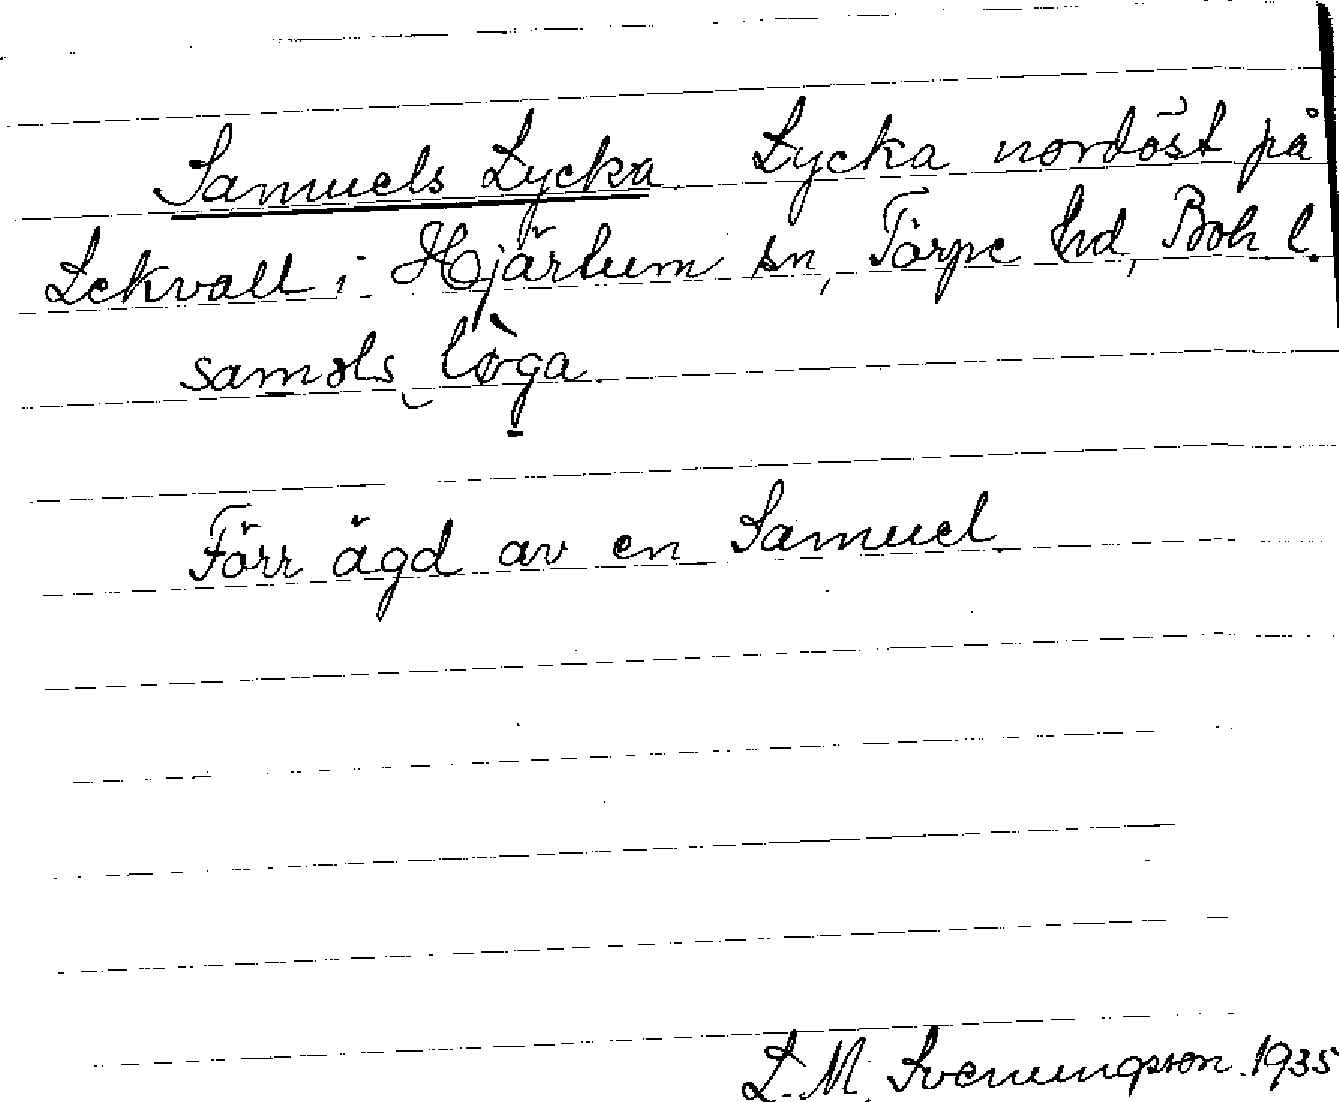 Samuels Lycka Lycka nordöst på
Lekvall i Hjärtum sn, Torpe hd, Boh l.
saməls løga
Förr ägd av en Samuel
L. M. Svenungsson 1935